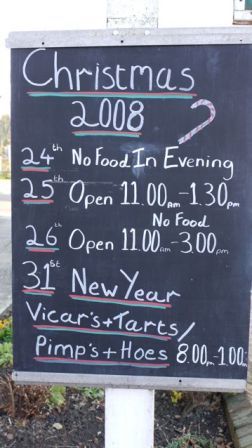 Christmas
2008
24th No Food In Evening
25th Open 11.00am-1.30pm
No Food
26th Open 11.00am-3.00pm
31st New Year
Vicar's+Tarts/
Pimp's+Hoes 8.00pm-1.00am